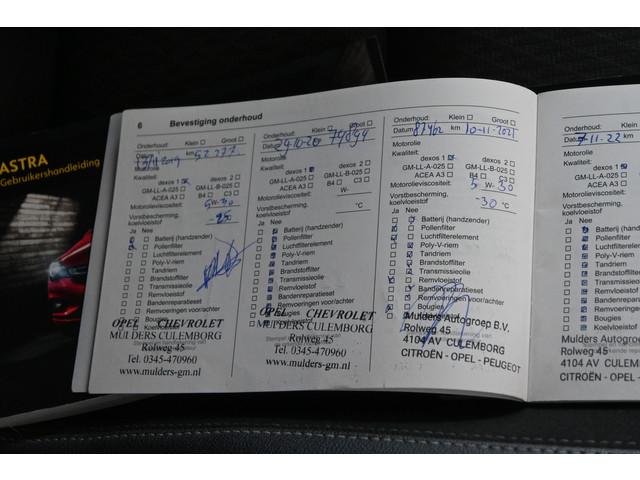 ASTRA
Gebruikershandleiding
6 Bevestiging onderhoud
Onderhoud: Klein Groot
Datum km
Motorolie
Kwaliteit:
dexos 1 dexos 2
GM-LL-A-025 GM-LL-B-025
ACEA A3 B4 C3
Motorolieviscositeit: 5W-30
Vorstbescherming,
koelvloeistof -25
Ja Nee
Batterij (handzender)
Pollenfilter
Luchtfilterelement
Poly-V-riem
Tandriem
Brandstoffilter
Transmissieolie
Remvloeistof
Bandenreparatieset
Remvoeringen voor/achter
Bougies
OPEL CHEVROLET
MULDERS CULEMBORG
Rolweg 45
Tel. 0345-470960
www.mulders-gm.nl
Onderhoud: Klein Groot
Datum 79894
Motorolie
Kwaliteit:
dexos 1 dexos 2
GM-LL-A-025 GM-LL-B-025
ACEA A3 B4 C3
Motorolieviscositeit: W-
Vorstbescherming,
koelvloeistof °C
Ja Nee
Batterij (handzender)
Pollenfilter
Luchtfilterelement
Poly-V-riem
Tandriem
Brandstoffilter
Transmissieolie
Remvloeistof
Bandenreparatieset
Remvoeringen voor/achter
Bougies
OPEL CHEVROLET
MULDERS CULEMBORG
Rolweg 45
Tel. 0345-470960
www.mulders-gm.nl
Onderhoud: Klein Groot
Datum 87462 km 10-11-2021
Motorolie
Kwaliteit:
dexos 1 dexos 2
GM-LL-A-025 GM-LL-B-025
ACEA A3 B4 C3
Motorolieviscositeit: 5 W- 30
Vorstbescherming,
koelvloeistof -30 °C
Ja Nee
Batterij (handzender)
Pollenfilter
Luchtfilterelement
Poly-V-riem
Tandriem
Brandstoffilter
Transmissieolie
Remvloeistof
Bandenreparatieset
Remvoeringen voor/achter
Bougies
Mulders Autogroep B.V.
Rolweg 45
4104 AV CULEMBORG
CITROËN - OPEL - PEUGEOT
Onderhoud:
Datum 7-11-22
Motorolie
Kwaliteit:
Motorolieviscositeit:
Vorstbescherming,
koelvloeistof
Ja Nee
Batterij (hand
Pollenfilter
Luchtfiltere
Poly-V-riem
Tandriem
Brandstoffilt
Transmissie
Remvloeisto
Bandenrepa
Remvoering
Bougies
Koelvloeist
Mulders Autogroep
Rolweg 45
4104 AV CULEMB
CITROËN - OPEL -